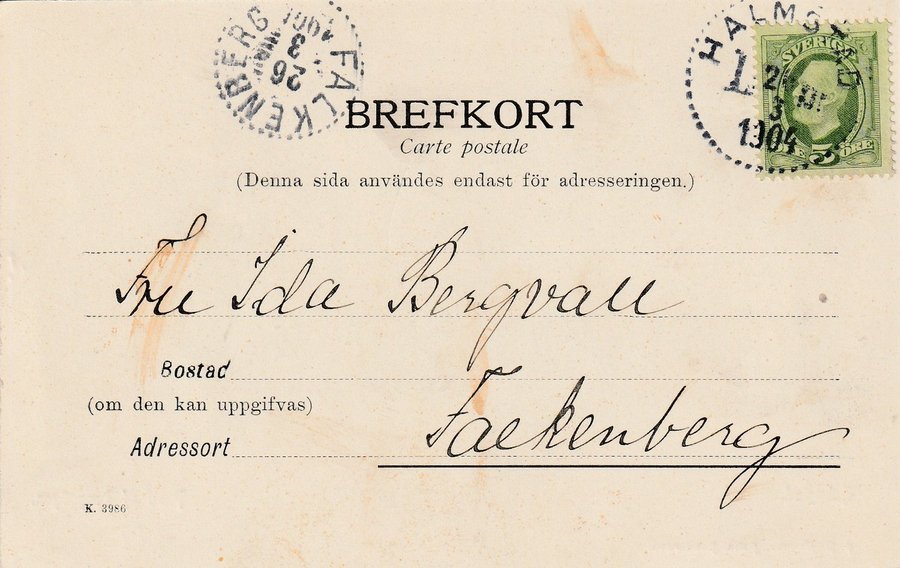 FALKENBERG
26
3
1904
HALMSTAD
L
3
1904
SVERIGE
5 ÖRE
BREFKORT
Carte postale
(Denna sida användes endast för adresseringen.)
Fru Ida Bergvall
Bostad
(om den kan uppgifvas)
Adressort
Falkenberg
K. 3986